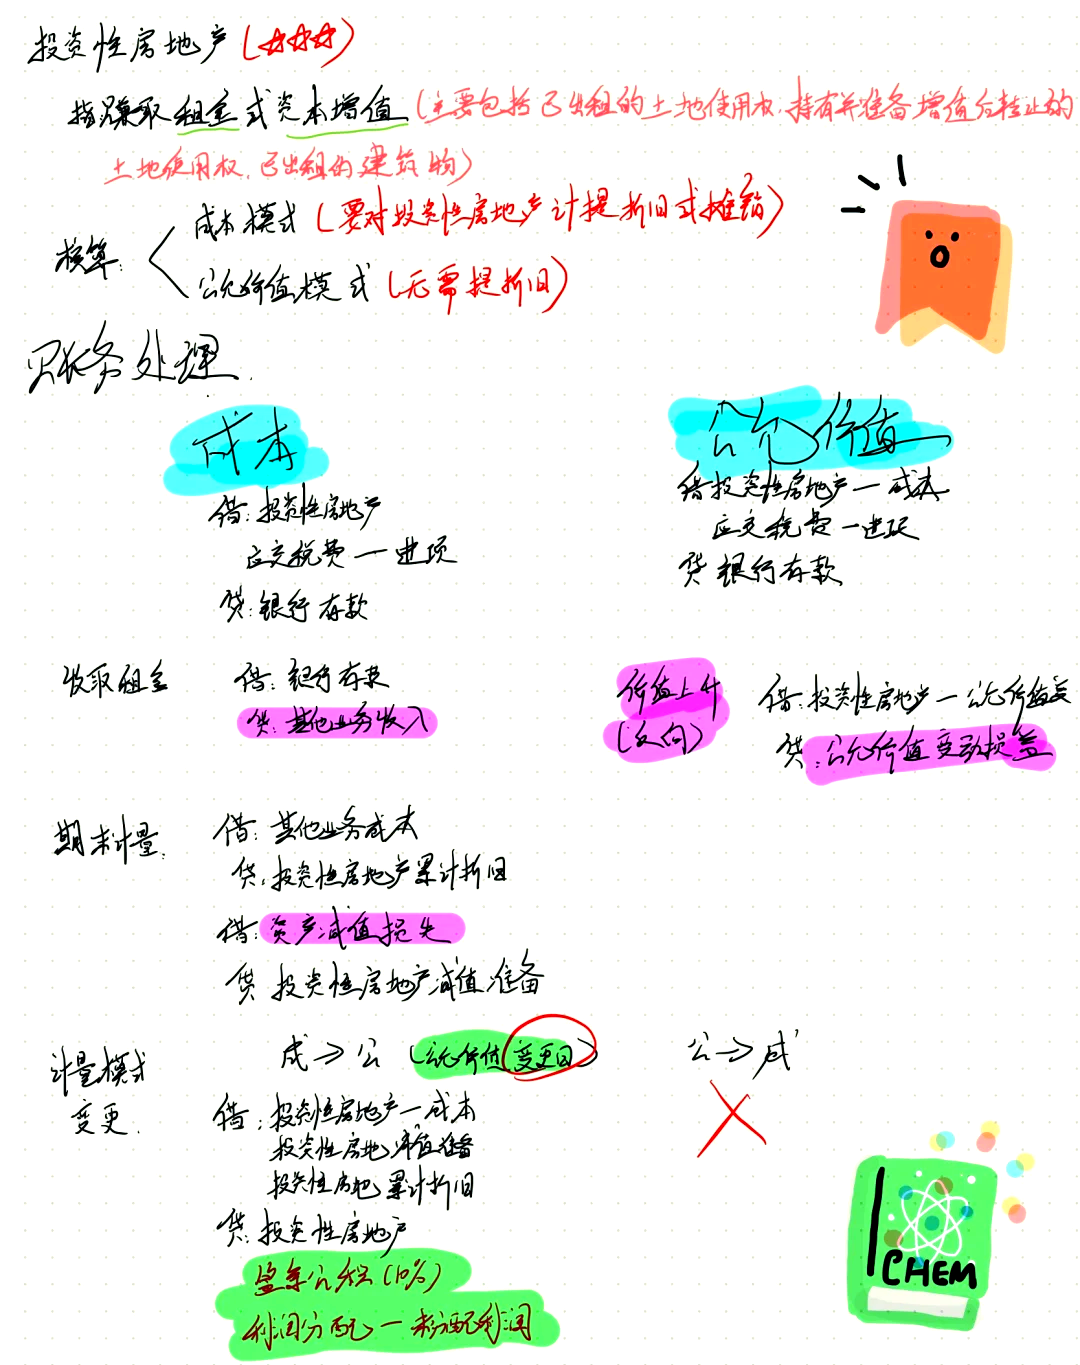 投资性房地产(☆☆☆)
指赚取租金或资本增值(主要包括已出租的土地使用权.持有并准备增值后转让的
土地使用权.已出租的建筑物)
核算:
成本模式(要对投资性房地产计提折旧或摊销)
公允价值模式(无需提折旧)
账务处理.
成本
公允价值
借:投资性房地产
应交税费—进项
贷:银行存款
借投资性房地产—成本
应交税费—进项
贷银行存款
收取租金
借:银行存款
贷:其他业务收入
价值上升
(反向)
借:投资性房地产—公允价值变
贷:公允价值变动损益
期末计量.
借:其他业务成本
贷:投资性房地产累计折旧
借:资产减值损失
贷 投资性房地产减值准备
计量模式
变更.
成→公(公允价值变更日)
公→成
借:投资性房地产—成本
投资性房地减值准备
投资性房地累计折旧
贷:投资性房地产
盈余公积(10%)
利润分配—未分配利润
CHEM